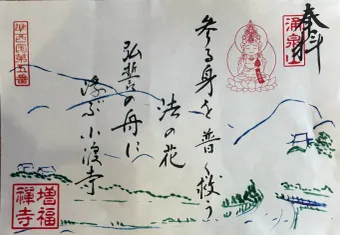 奉拝
湧泉山
参る身を普く救う
法の花
弘誓の舟に
浮ぶ小渡寺
西国第五番
増福
禪寺